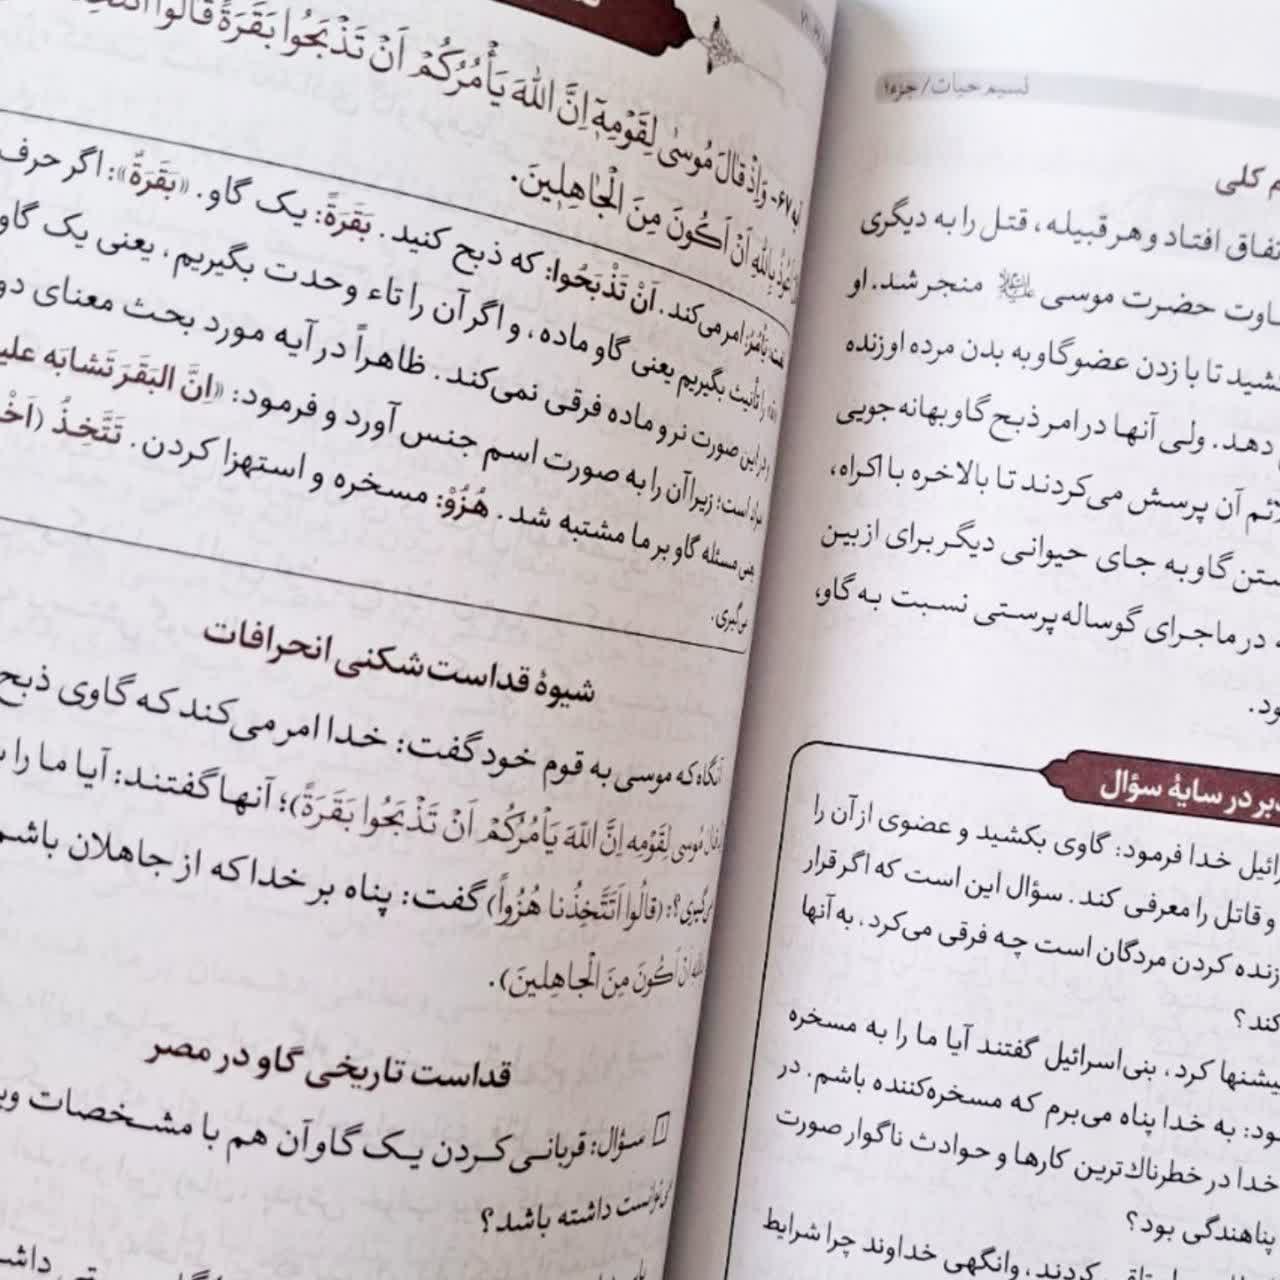 نسیم حیات / جزء ۱
م کلی
تفاق افتاد و هر قبیله، قتل را به دیگری
اوت حضرت موسی علیه‌السلام منجر شد. او
کشید تا با زدن عضو گاو به بدن مرده او زنده
دهد. ولی آنها در امر ذبح گاو بهانه جویی
ئم آن پرسش می‌کردند تا بالاخره با اکراه،
ستن گاو به جای حیوانی دیگر برای از بین
ه در ماجرای گوساله پرستی نسبت به گاو،
ود.
بر در سایهٔ سؤال
رائیل خدا فرمود: گاوی بکشید و عضوی از آن را
و قاتل را معرفی کند. سؤال این است که اگر قرار
زنده کردن مردگان است چه فرقی می‌کرد، به آنها
کند؟
یشنها کرد، بنی‌اسرائیل گفتند آیا ما را به مسخره
ود: به خدا پناه می‌برم که مسخره‌کننده باشم. در
خدا در خطرناك‌ترین کارها و حوادث ناگوار صورت
پناهندگی بود؟
کردند، وانگهی خداوند چرا شرایط
آیه ۶۷- وَاِذْ قالَ مُوسىٰ لِقَوْمِهٖٓ اِنَّ اللّٰهَ يَأْمُرُكُمْ اَنْ تَذْبَحُوا بَقَرَةً قالُوا
اَعُوذُ بِاللّٰهِ اَنْ اَكُونَ مِنَ الْجٰاهِلِينَ.
لغت: یَأمُرُ: امر می‌کند. اَنْ تَذْبَحُوا: که ذبح کنید. بَقَرَةً: یک گاو. «بَقَرَةً»: اگر حرف
را تأنیث بگیریم یعنی گاو ماده، و اگر آن را تاء وحدت بگیریم، یعنی یک گاو
در این صورت نر و ماده فرقی نمی‌کند. ظاهراً در آیه مورد بحث معنای دو
مراد است؛ زیرا آن را به صورت اسم جنس آورد و فرمود: «اِنَّ البَقَرَ تَشابَه علی
یعنی مسئله گاو بر ما مشتبه شد. هُزُوْ: مسخره و استهزا کردن. تَتَّخِذُ (اَخْ
می‌گیری.
شیوهٔ قداست‌شکنی انحرافات
آنگاه که موسی به قوم خود گفت: خدا امر می‌کند که گاوی ذبح
قالَ مُوسى لِقَوْمِهِ اِنَّ اللّهَ يَأْمُرُكُمْ اَنْ تَذْبَحُوا بَقَرَةً)؛ آنها گفتند: آیا ما را
می‌گیری؟: (قالُوا اَتَتَّخِذُنا هُزُواً) گفت: پناه بر خدا که از جاهلان باشم
بِاللّهِ اَنْ اَكُونَ مِنَ الْجاهِلينَ).
قداست تاریخی گاو در مصر
سؤال: قربانی کردن یک گاو آن هم با مشخصات
داشته باشد؟